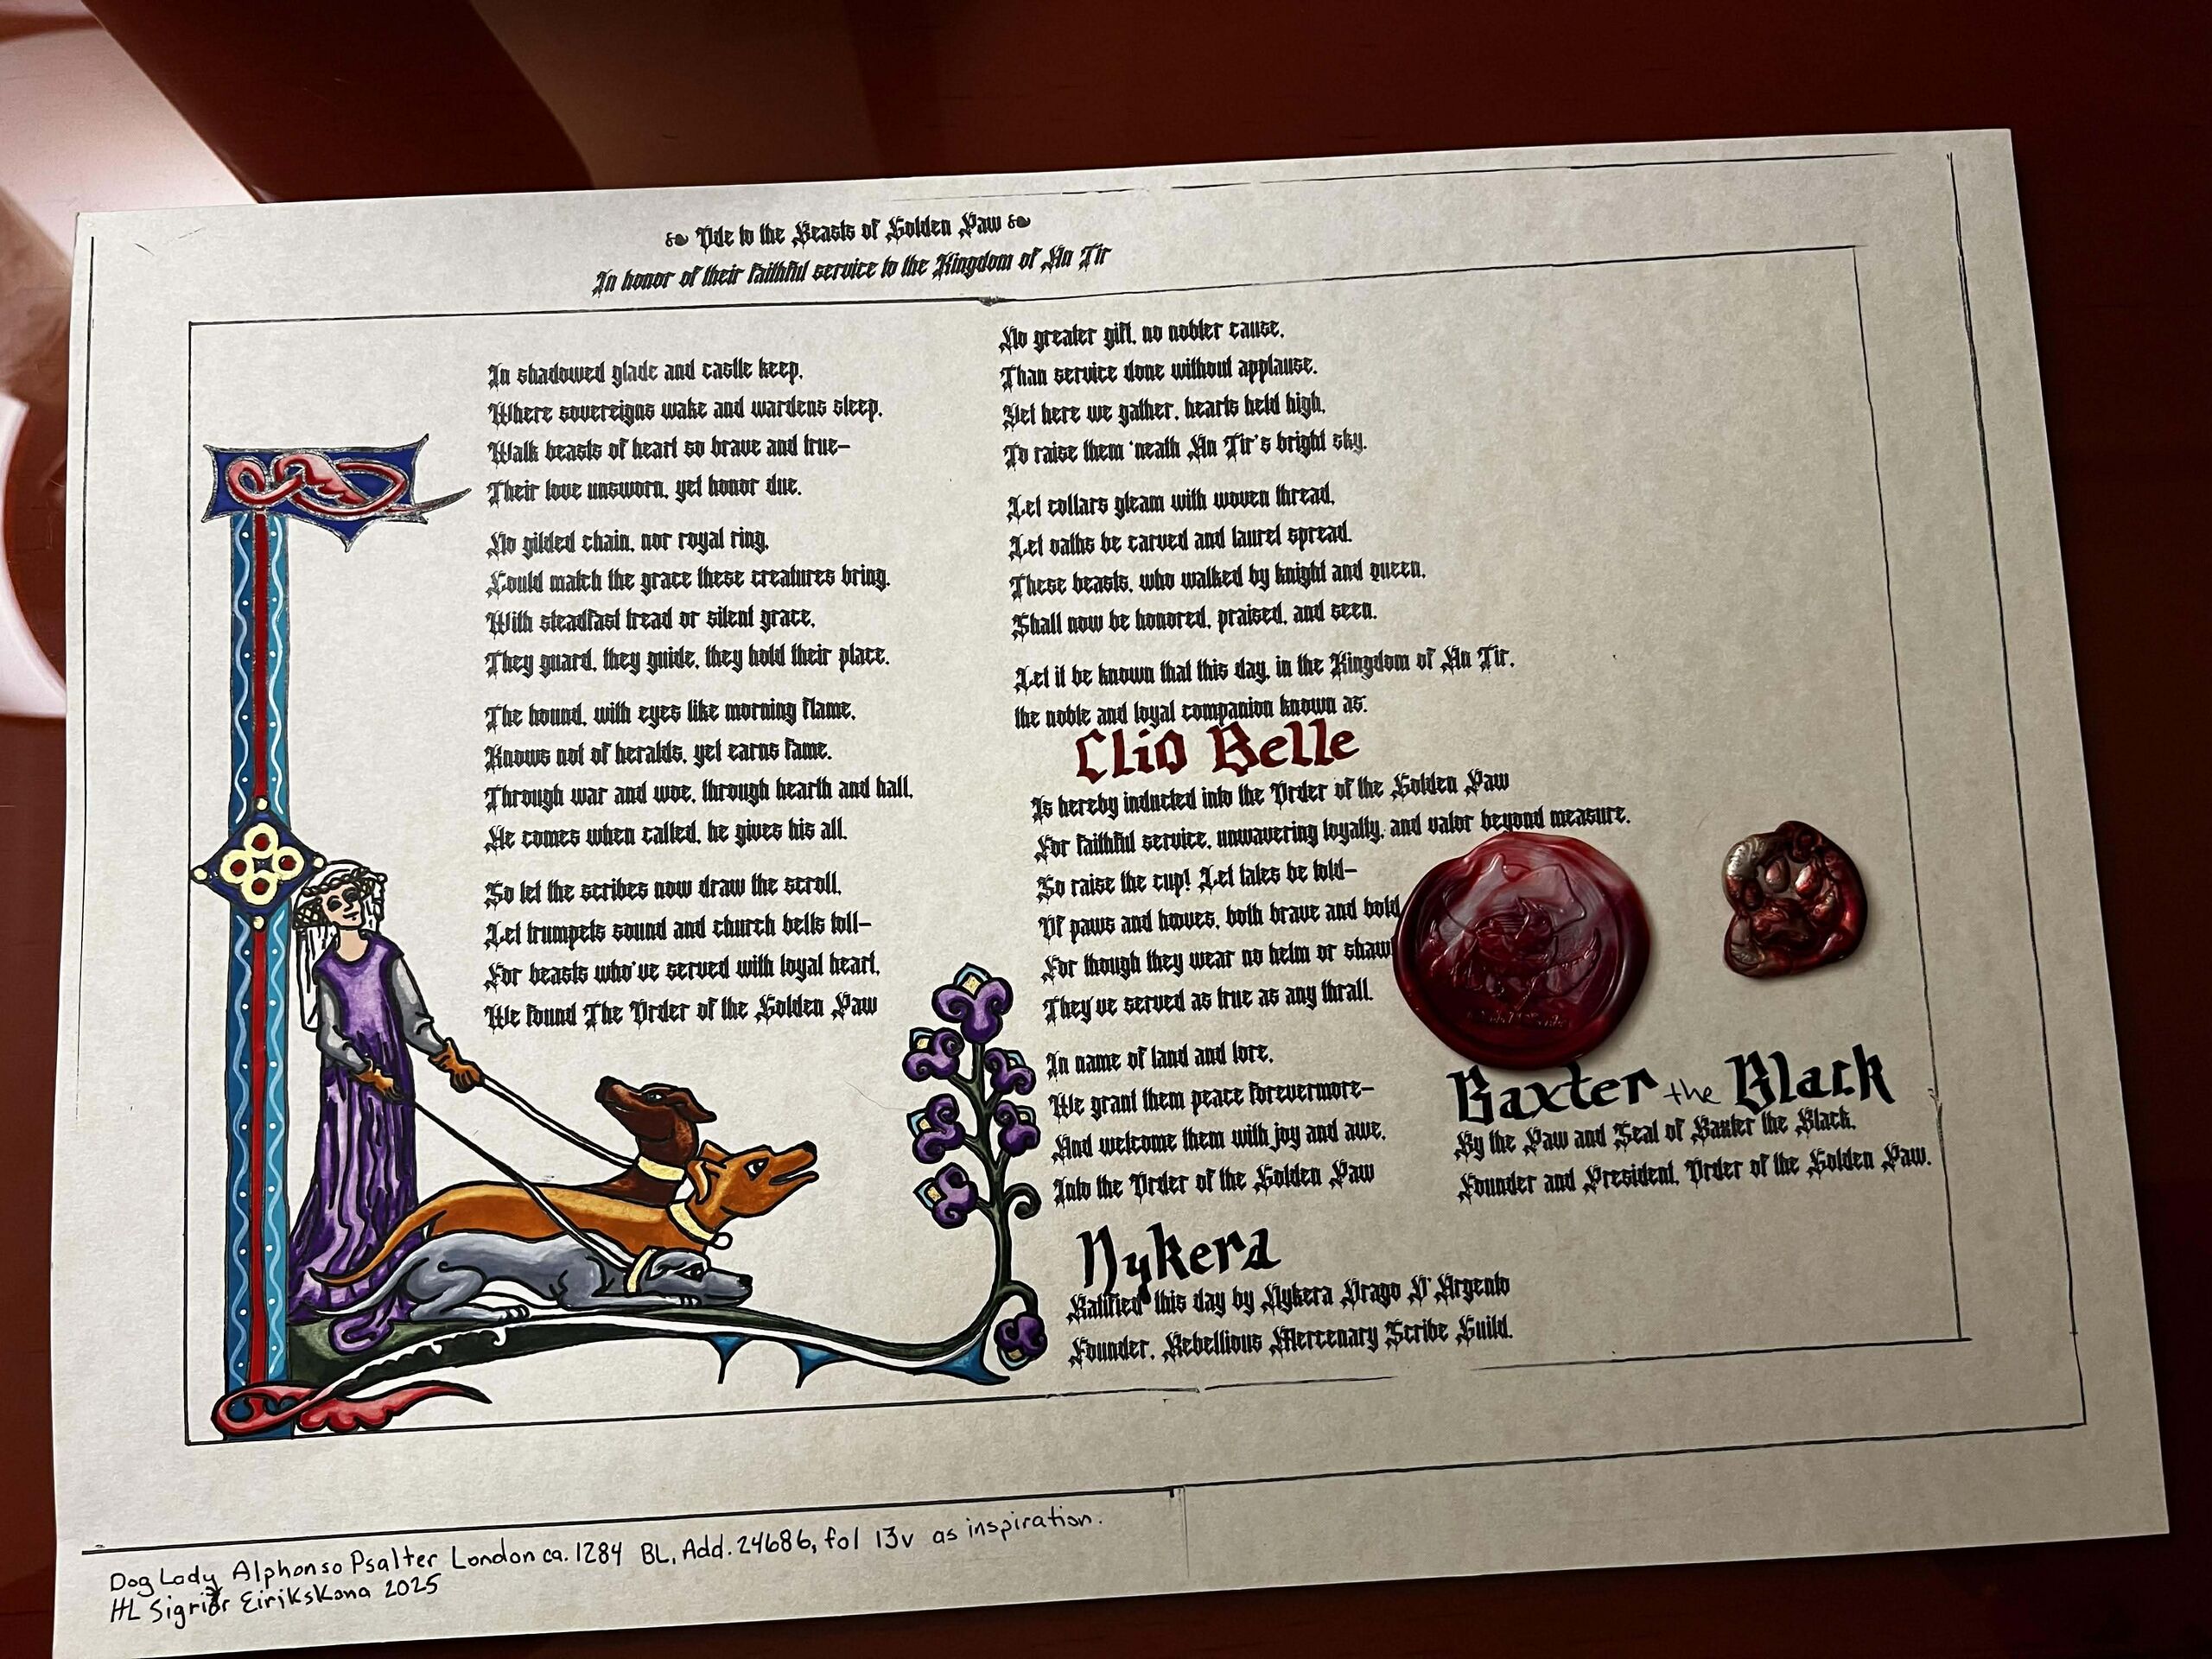 Ode to the Beasts of Golden Paw
In honor of their faithful service to the Kingdom of An Tir
In shadowed glade and castle keep,
Where sovereigns wake and wardens sleep,
Walk beasts of heart so brave and true—
Their love unsworn, yet honor due.
No gilded chain, nor royal ring,
Could match the grace these creatures bring.
With steadfast tread or silent grace,
They guard, they guide, they hold their place.
The hound, with eyes like morning flame,
Knows not of heralds, yet earns fame.
Through war and woe, through hearth and hall,
He comes when called, he gives his all.
So let the scribes now draw the scroll,
Let trumpets sound and church bells toll—
For beasts who've served with loyal heart,
We found The Order of the Golden Paw
No greater gift, no nobler cause,
Than service done without applause.
Yet here we gather, hearts held high,
To raise them 'neath An Tir's bright sky.
Let collars gleam with woven thread,
Let oaths be carved and laurel spread.
These beasts, who walked by knight and queen,
Shall now be honored, praised, and seen.
Let it be known that this day, in the Kingdom of An Tir,
the noble and loyal companion known as:
Clio Belle
Is hereby inducted into the Order of the Golden Paw
For faithful service, unwavering loyalty, and valor beyond measure.
So raise the cup! Let tales be told—
Of paws and hooves, both brave and bold
For though they wear no helm or shawl
They've served as true as any thrall.
In name of land and lore,
We grant them peace forevermore—
And welcome them with joy and awe,
Into the Order of the Golden Paw
Nykera
Ratified this day by Nykera Drago D'Argento
Founder, Rebellious Mercenary Scribe Guild.
Baxter the Black
By the Paw and Seal of Baxter the Black,
Founder and President, Order of the Golden Paw.
Dog Lady Alphonso Psalter London ca. 1284 BL, Add. 24686, fol 13v as inspiration.
HL Sigriðr Eirikskona 2025